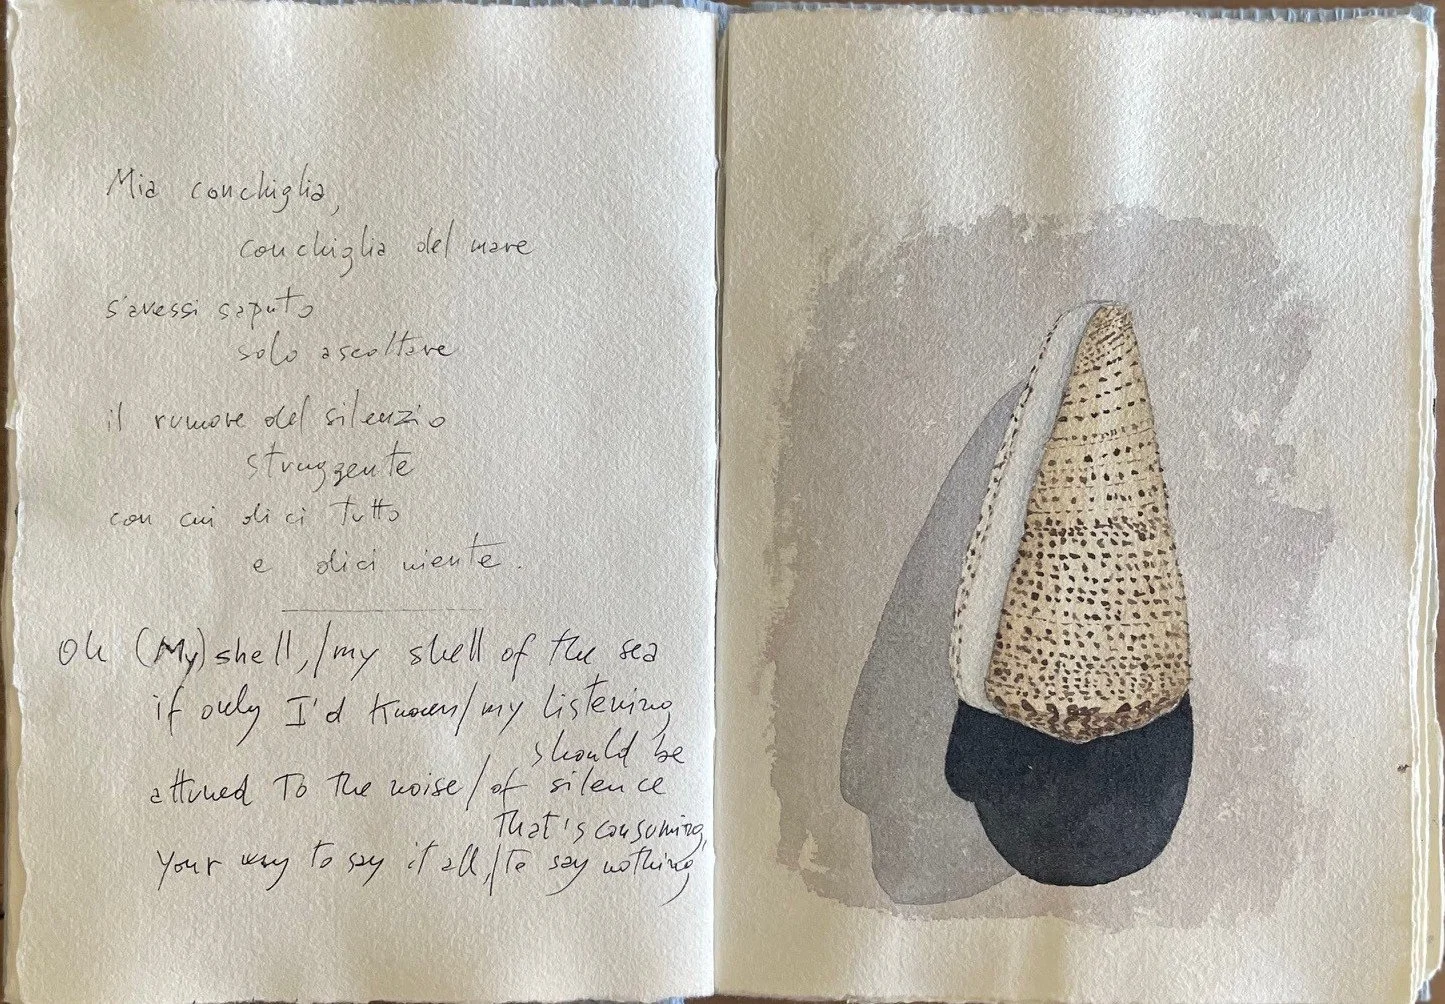 Mia conchiglia,
conchiglia del mare
s'avessi saputo
solo ascoltare
il rumore del silenzio
struggente
con cui dici tutto
e dici niente.
Oh (My) shell,/my shell of the sea
if only I'd known/my listening
should be
attuned to the noise/of silence
that's consuming,
your way to say it all,/to say nothing